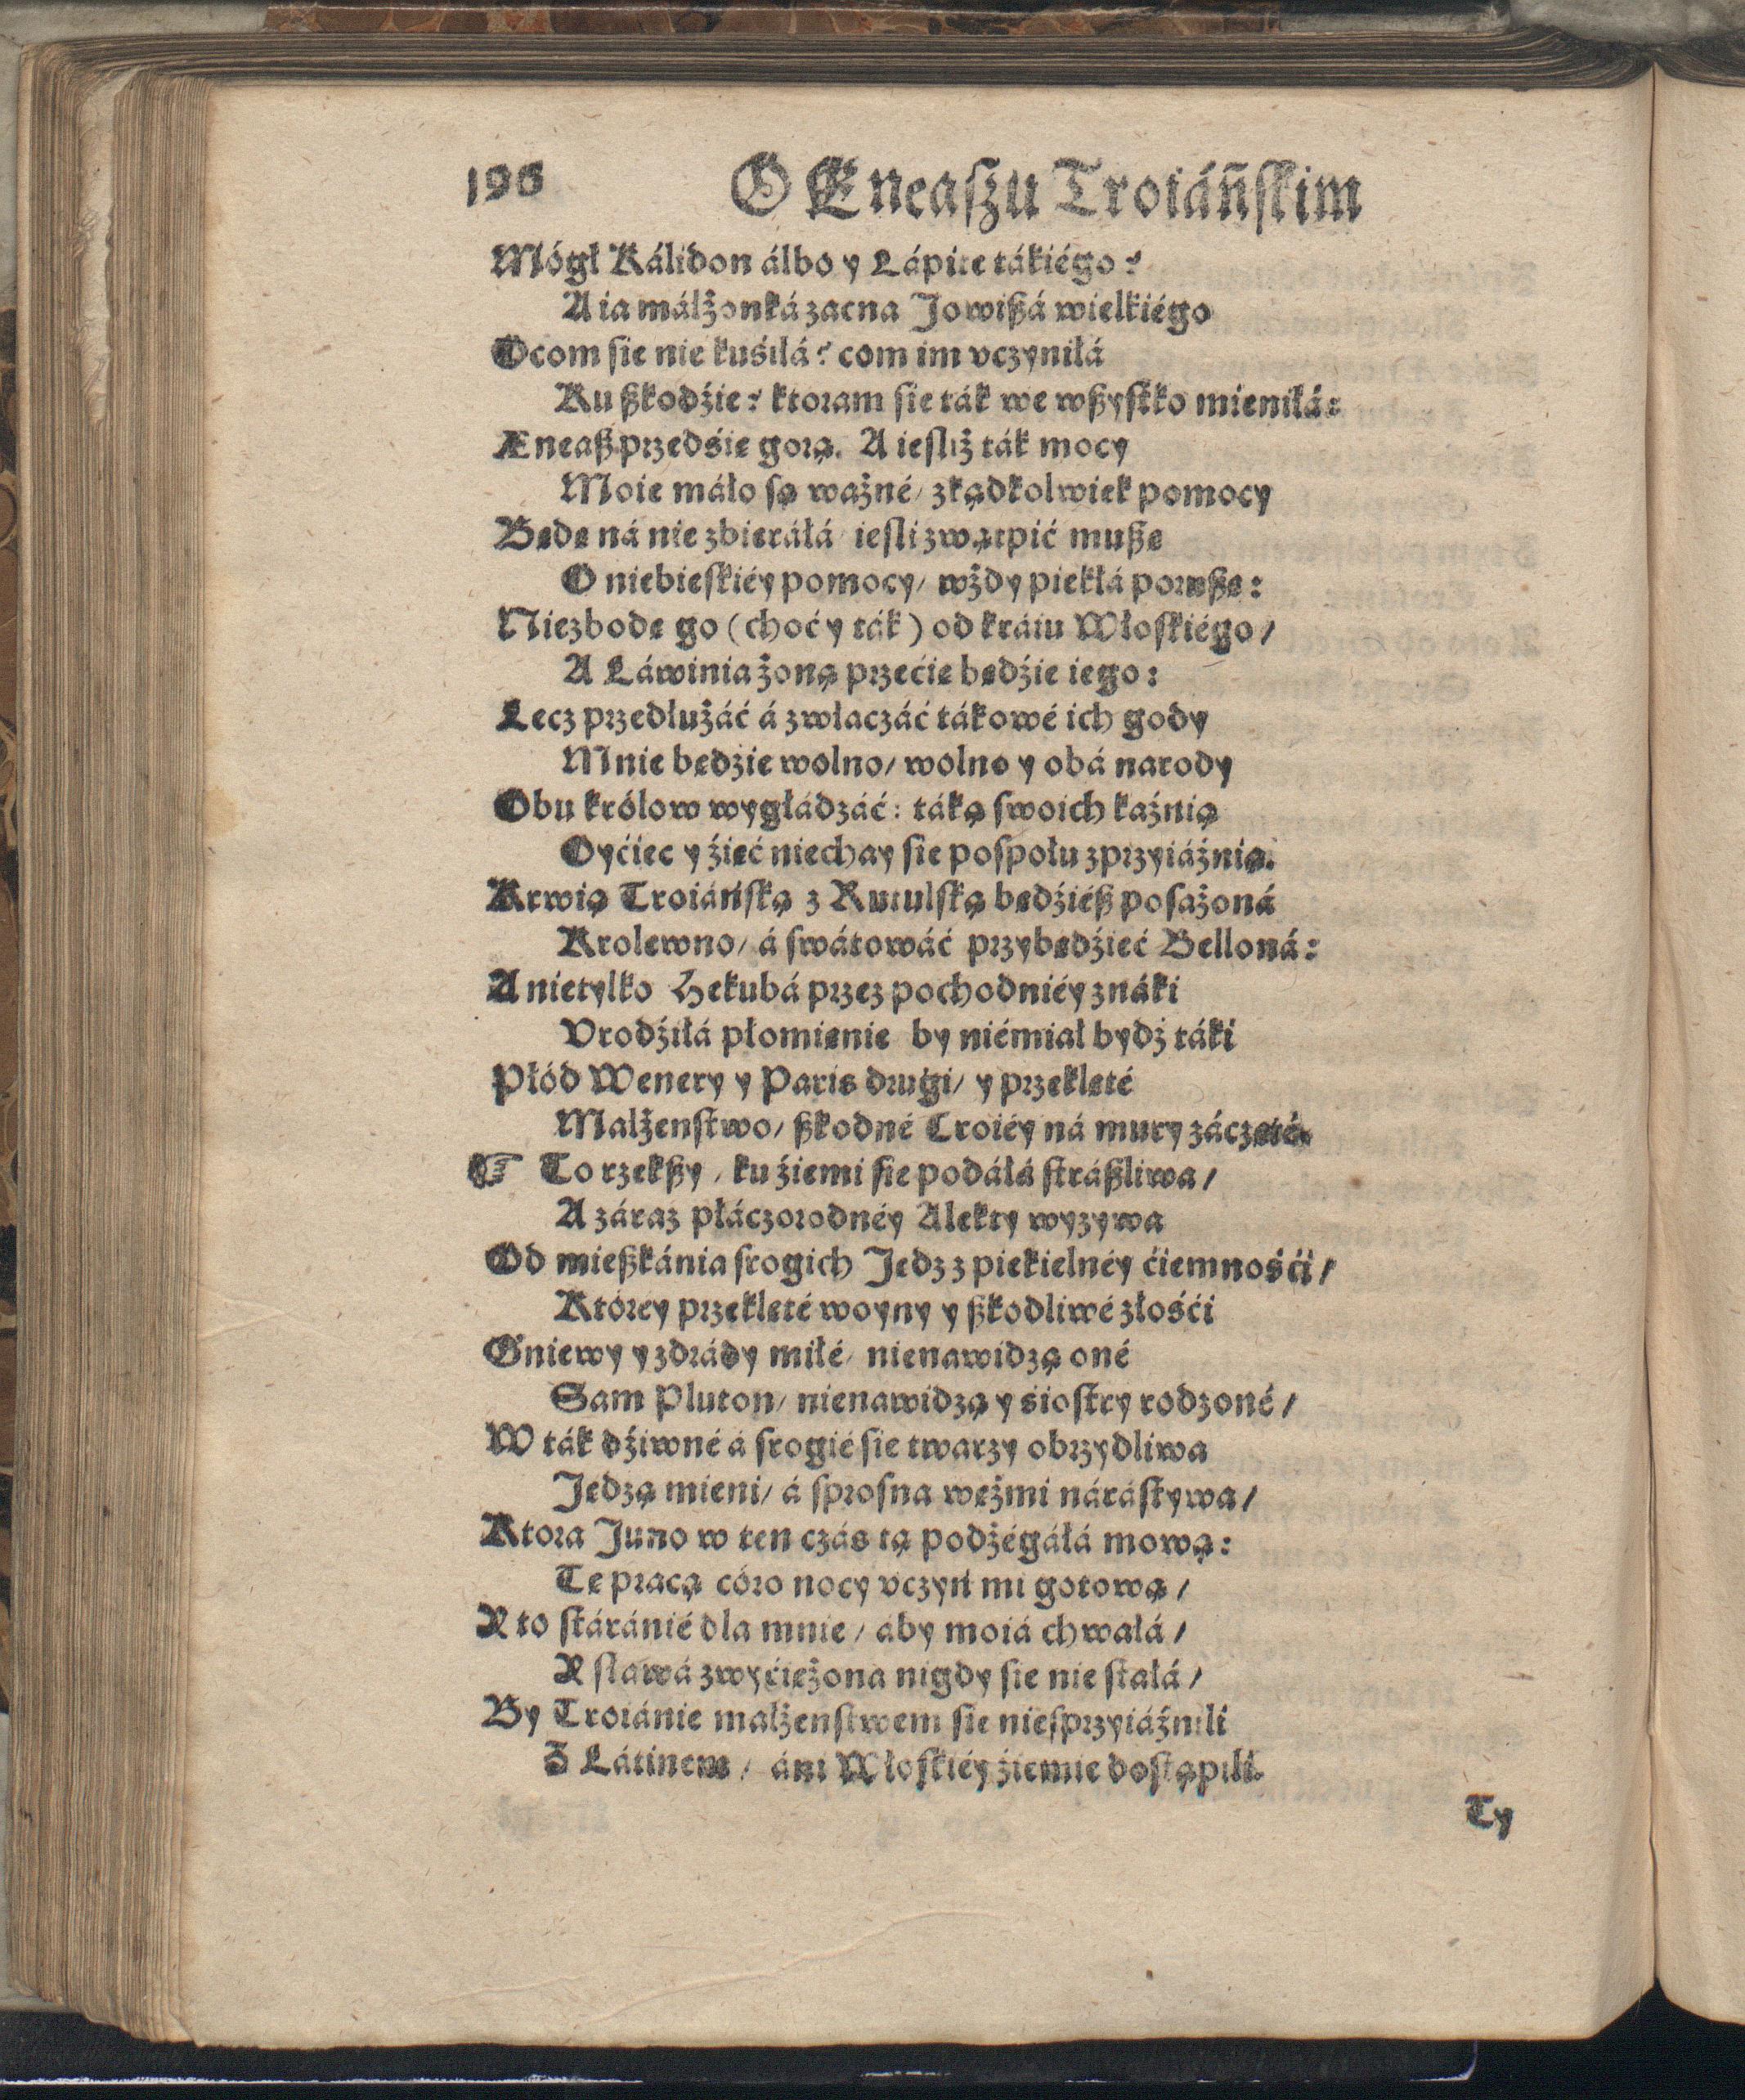 196 O Eneaſzu Troiáńſkim
Mógł Kálidon álbo y Lápite tákiégo?
A ia máłżonká zacna Jowiſzá wielkiégo
Ocom ſie nie kuśiłá? com im vczyniłá
Ku ſzkodźie? ktoram ſie ták we wſzyſtko mieniłá:
Æneaſz przedśię gorą. A ieſliż ták mocy
Moie máło ſą ważné/ zkądkolwiek pomocy
Będę ná nie zbieráłá/ ieſli zwątpić muſzę
O niebieſkiéy pomocy/ wżdy piekłá poruſzę:
Niezbodę go (choć y ták) od kráiu Włoſkiégo/
A Láwinia żoną przećię będźie iego:
Lecz przedłużáć á zwłaczáć tákowé ich gody
Mnie będzie wolno/ wolno y obá narody
Obu królow wygłádzáć: táką ſwoich kaźnią
Oyćiec y źięć niechay ſie poſpołu zprzyiáźnią.
Krwią Troiáńſką z Rutulſką będźiéſz poſażoná
Krolewno/ á ſwátowáć przybędźieć Belloná:
A nietylko Hekubá przez pochodniéy znáki
Vrodźiłá płomienie by niémiał bydź táki
Płód Wenery y Paris drugi/ y przeklęté
Małżenſtwo/ ſzkodné Troiéy ná mury záczęté.
☞ To rzekſzy/ ku źiemi ſie podáłá ſtráſzliwa/
A záraz płáczorodnéy Alekty wyzywa
Od mieſzkánia ſrogich Jędz z piekielnéy ćiemnośći/
Którey przeklęté woyny y ſzkodliwé złośći
Gniewy y zdrády miłé/ nienawidzą oné
Sam Pluton/ nienawidzą y śioſtry rodzoné/
W ták dźiwné á ſrogié ſie twarzy obrzydliwa
Jędzą mieni/ á ſproſna wężmi náráſtywa/
Ktora Juno w ten czás tą podżégáłá mową:
Tę pracą córo nocy vczyń mi gotową/
Y to ſtáránié dla mnie/ aby moiá chwałá/
Y ſławá zwyćiężona nigdy ſie nie ſtałá/
By Troiánie małżenſtwem ſie nieſprzyiáźnili
Z Látinem/ áni Włoſkiéy źiemie doſtąpili.
Ty